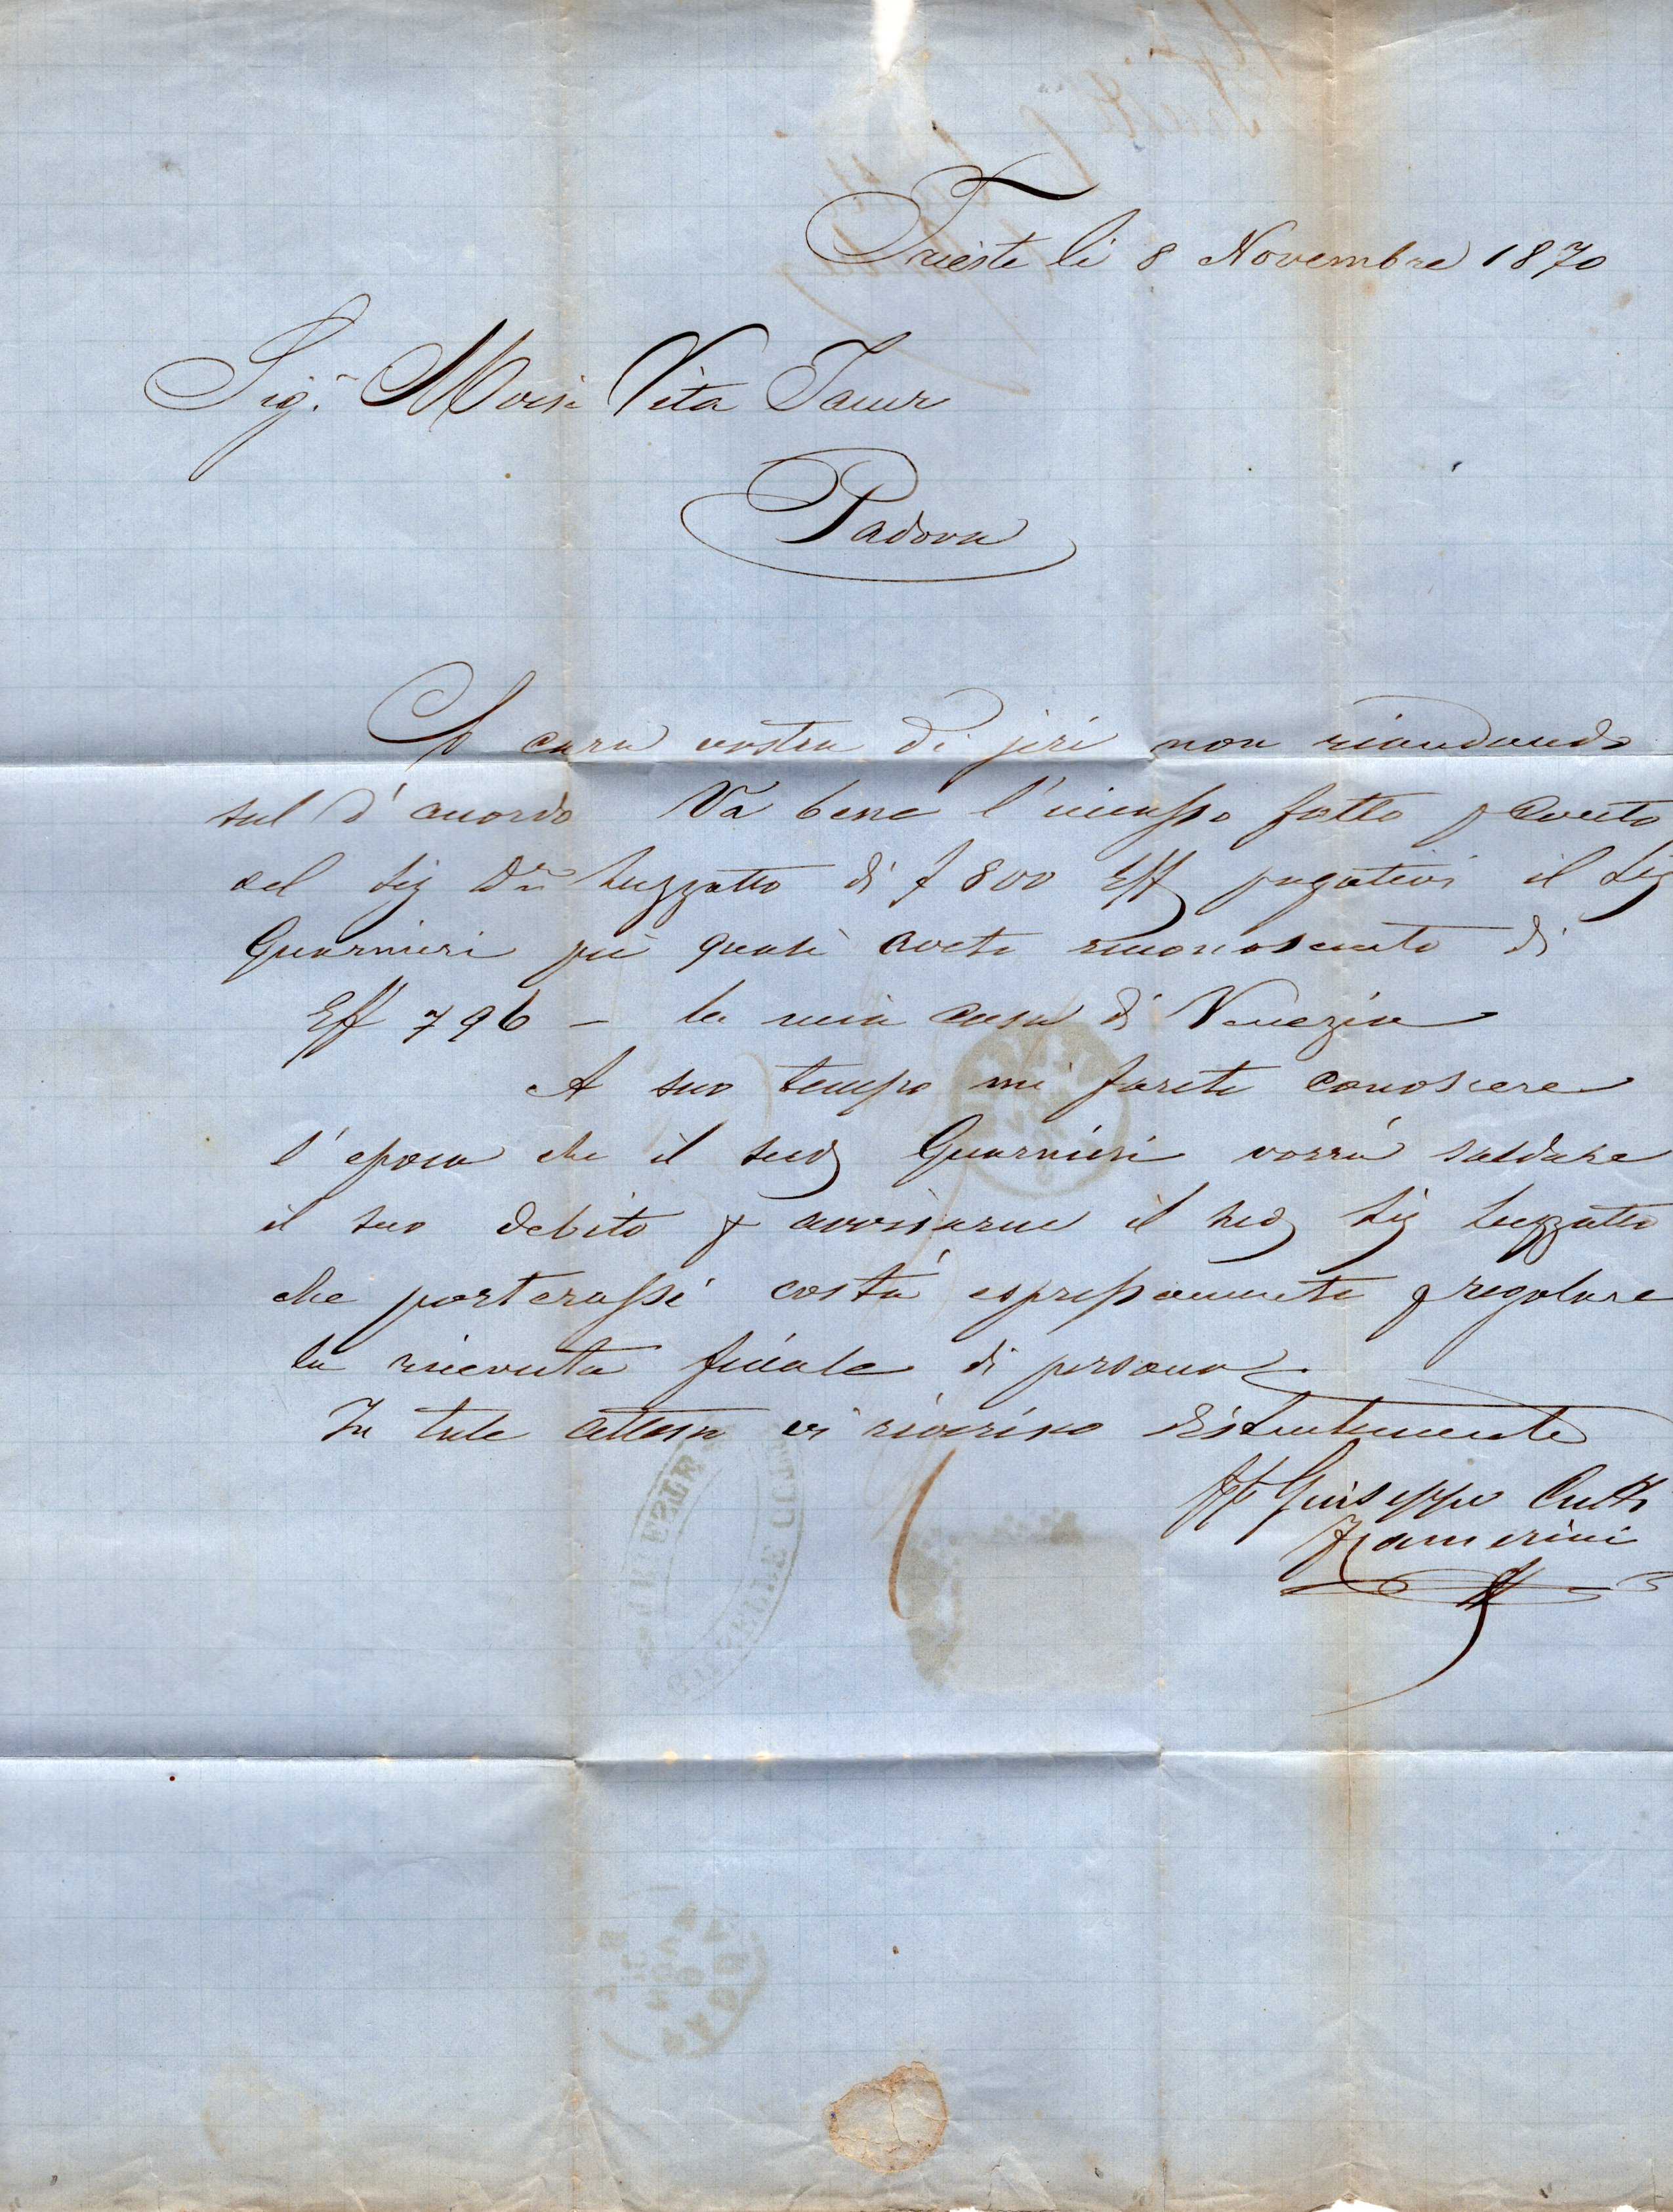 Trieste li 8 Novembre 1870
Sig.r Moisè Vita Jacur
Padova
O cara vostra di jeri non riandando
sul d'accordo Va bene l'incasso fatto p conto
del Sig Luzzatto di f 800 Eff pagativi il Sig
Guarnieri più quali avete riconosciuto di
Eff 796 – la mia casa di Venezia
A suo tempo mi farete conoscere
l'epoca che il sud Guarnieri vorrà saldare
il suo debito p avvisarne il sud Sig Luzzatto
che porterassi costà espressamente p regolare
la ricevuta finale di persona
In tale attesa vi riverisco distintamente
Giuseppe
Zamerini
TRIESTE
PADOVA